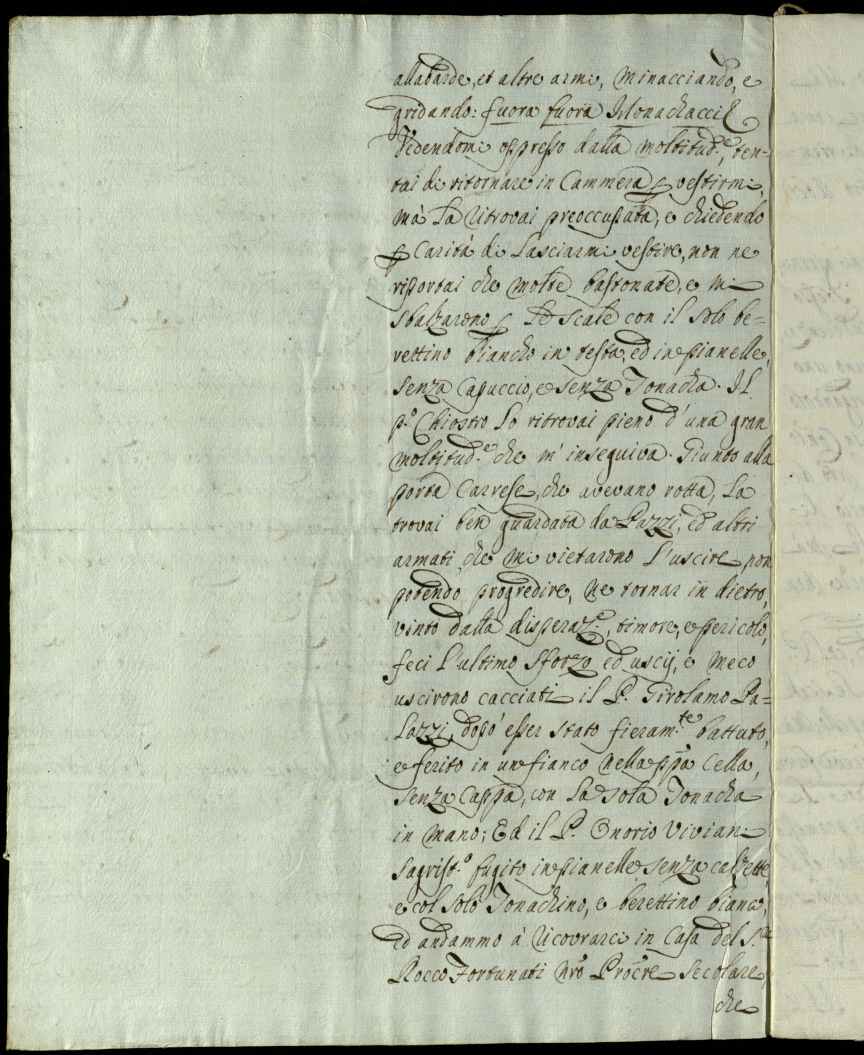 allabarde, et altre armi, minacciando, e
gridando: fuora fuora Monachacci
Vedendomi oppresso dalla moltitud.e, ten=
tai di ritornare in Cammera p vestirmi,
mà la ritrovai preoccupata, e chiedendo
p Carità di lasciarmi vestire, non ne
riportai che molte bastonate, e mi
sbalzarono p le scale con il solo be=
rettino biancho in testa, ed in pianelle,
senza Capuccio, e senza Tonacha. Il
p.o Chiostro lo ritrovai pieno d'una gran
moltitud.e che m'inseguiva. Giunto alla
porta Carrese, che avevano rotta, la
trovai ben guardata da Pazzi, ed altri
armati che mi vietarono l'uscire, non
potendo progredire, ne tornar in dietro,
vinto dalla disperaz.e, timore, e pericolo,
feci l'ultimo sforzo, ed uscij, e meco
uscirono cacciati il P. Girolamo Pa=
lazzi, dopo' esser stato fieram.te battuto,
e ferito in un fianco nella ppa Cella,
senza Cappa, con la sola Tonacha
in mano; Ed il P. Onorio Viviani
sagrist.o fugito in pianelle senza calzette,
e col solo Tonachino, e berettino bianco,
ed andammo à ricovrarci in Casa del S.r
Rocco Fortunati nrõ Procre secolare,
che